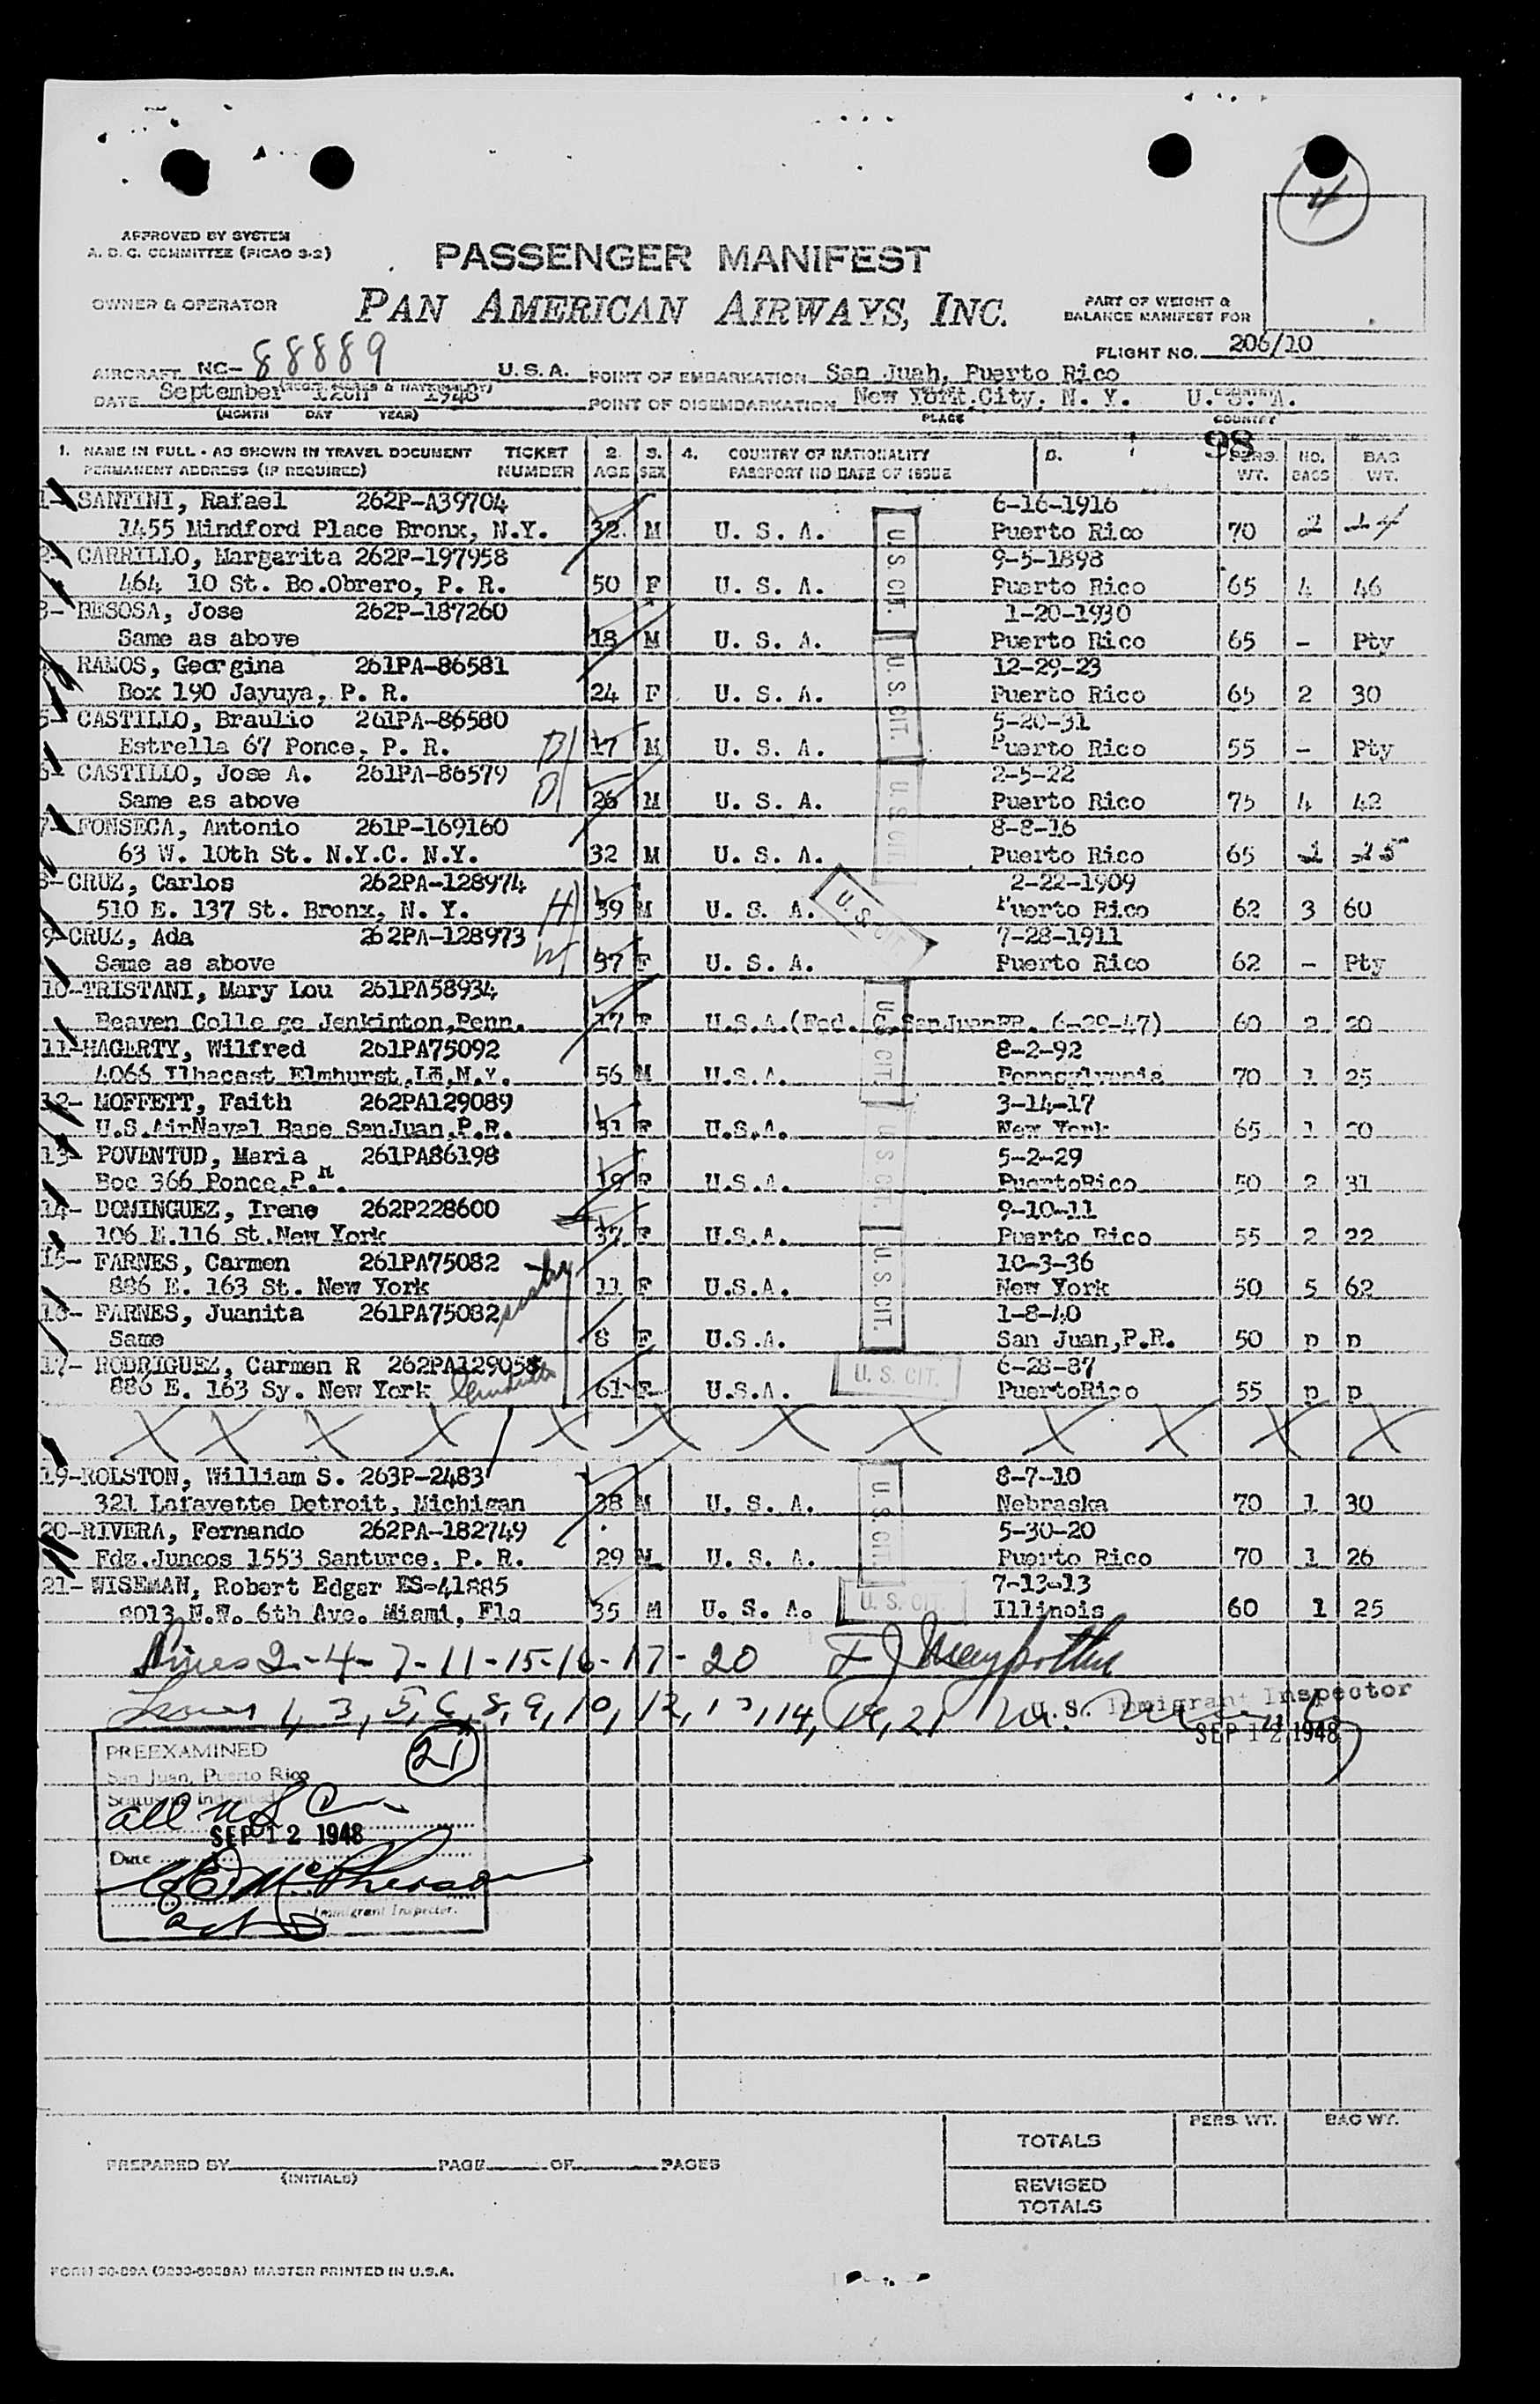 4
APPROVED BY SYSTEM
A. D. C. COMMITTEE (PICAO 3-2)
PASSENGER MANIFEST
OWNER & OPERATOR
PAN AMERICAN AIRWAYS, INC.
PART OF WEIGHT &
BALANCE MANIFEST FOR
FLIGHT NO. 206/10
AIRCRAFT NC- 88889 U.S.A. POINT OF EMBARKATION San Juan, Puerto Rico
DATE September 12th 1948 POINT OF DISEMBARKATION New York City, N. Y. U. S. A.
(MONTH DAY YEAR) PLACE COUNTRY
98
1. NAME IN FULL - AS SHOWN IN TRAVEL DOCUMENT TICKET 2. 3. 4. COUNTRY OF NATIONALITY PERS. NO. BAG
PERMANENT ADDRESS (IF REQUIRED) NUMBER AGE SEX PASSPORT NO DATE OF ISSUE WT. BAGS WT.
1- SANTINI, Rafael 262P-A39704 6-16-1916
1455 Mindford Place Bronx, N.Y. 32 M U. S. A. Puerto Rico 70 2
2- CARRILLO, Margarita 262P-197958 9-5-1898
464 10 St. Bo.Obrero, P. R. 50 F U. S. A. Puerto Rico 65 4 46
3- BESOSA, Jose 262P-187260 1-20-1930
Same as above 18 M U. S. A. Puerto Rico 65 - Pty
RAMOS, Georgina 261PA-86581 12-29-23
Box 190 Jayuya, P. R. 24 F U. S. A. Puerto Rico 65 2 30
5- CASTILLO, Braulio 261PA-86580 5-20-31
Estrella 67 Ponce, P. R. 17 M U. S. A. Puerto Rico 55 - Pty
6- CASTILLO, Jose A. 261PA-86579 2-5-22
Same as above 26 M U. S. A. Puerto Rico 75 4 42
7- FONSECA, Antonio 261P-169160 8-8-16
63 W. 10th St. N.Y.C. N.Y. 32 M U. S. A. Puerto Rico 65
8- CRUZ, Carlos 262PA-128974 2-22-1909
510 E. 137 St. Bronx, N. Y. H 39 M U. S. A. Puerto Rico 62 3 60
9- CRUZ, Ada 262PA-128973 7-28-1911
Same as above W 37 F U. S. A. Puerto Rico 62 - Pty
10-TRISTANI, Mary Lou 261PA58934
Beaven Colle ge Jenkinton,Penn. 17 F U.S.A.(Fed. C. SanJuanPR. 6-29-47) 60 2 20
11-HAGERTY, Wilfred 261PA75092 8-2-92
4066 Ilhacast Elmhurst, N.Y. 56 M U.S.A. Pennsylvania 70 1 25
12- MOFFETT, Faith 262PA129089 3-14-17
U.S.AirNaval Base SanJuan,P.R. 31 F U.S.A. New York 65 1 20
13- POVENTUD, Maria 261PA86198 5-2-29
Boc 366 Ponce,P.R. 19 F U.S.A. PuertoRico 50 2 31
14- DOMINGUEZ, Irene 262P228600 9-10-11
106 E.116 St.New York 37 F U.S.A. Puerto Rico 55 2 22
15- FARNES, Carmen 261PA75082 10-3-36
886 E. 163 St. New York 11 F U.S.A. New York 50 5 62
16- FARNES, Juanita 261PA75082 1-8-40
Same 8 F U.S.A. San Juan,P.R. 50 p p
17- RODRIGUEZ, Carmen R 262PA129058 6-28-87
886 E. 163 Sy. New York 61 F U.S.A. PuertoRico 55 p p
X X X X X X X X X X X X
19-ROLSTON, William S. 263P-2483 8-7-10
321 Lafayette Detroit, Michigan 38 M U. S. A. Nebraska 70 1 30
20-RIVERA, Fernando 262PA-182749 5-30-20
Fdz.Juncos 1553 Santurce, P. R. 29 M U. S. A. Puerto Rico 70 1 26
21- WISEMAN, Robert Edger ES-41885 7-13-13
2013 N.W. 6th Ave. Miami, Fla 35 M U. S. A. Illinois 60 1 25
U. S. CIT.
U. S. CIT.
U. S. CIT.
U. S. CIT.
U. S. CIT.
U. S. CIT.
U. S. CIT.
U. S. CIT.
U. S. CIT.
U. S. CIT.
Lines 2-4-7-11-15-16-17-20
Lines 1, 3, 5, 6, 8, 9, 10, 12, 13, 14, 19, 21
U. S. Immigrant Inspector
SEP 12 1948
PREEXAMINED 21
San Juan, Puerto Rico
Status as Indicated
all U S C
SEP 12 1948
Date
McPherson
Immigrant Inspector.
PERS. WT. BAG WT.
TOTALS
PREPARED BY PAGE OF PAGES
(INITIALS)
REVISED
TOTALS
MASTER PRINTED IN U.S.A.